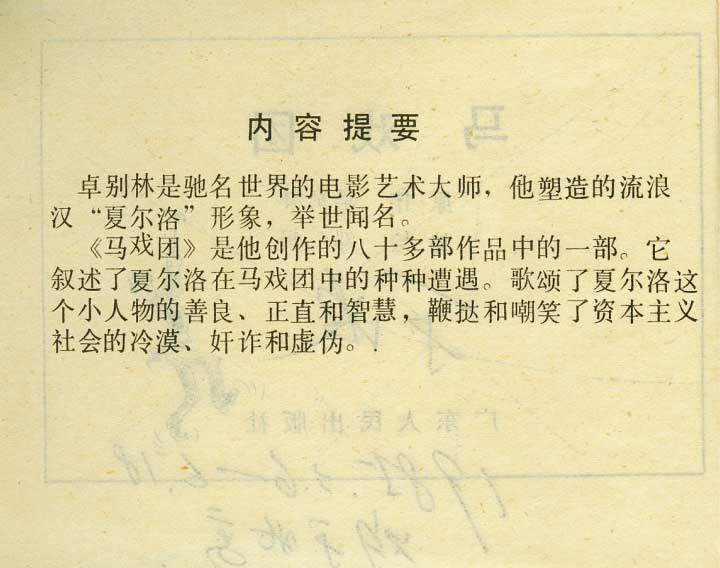 内容提要
卓别林是驰名世界的电影艺术大师，他塑造的流浪
汉“夏尔洛”形象，举世闻名。
《马戏团》是他创作的八十多部作品中的一部。它
叙述了夏尔洛在马戏团中的种种遭遇。歌颂了夏尔洛这
个小人物的善良、正直和智慧，鞭挞和嘲笑了资本主义
社会的冷漠、奸诈和虚伪。
广东人民出版社